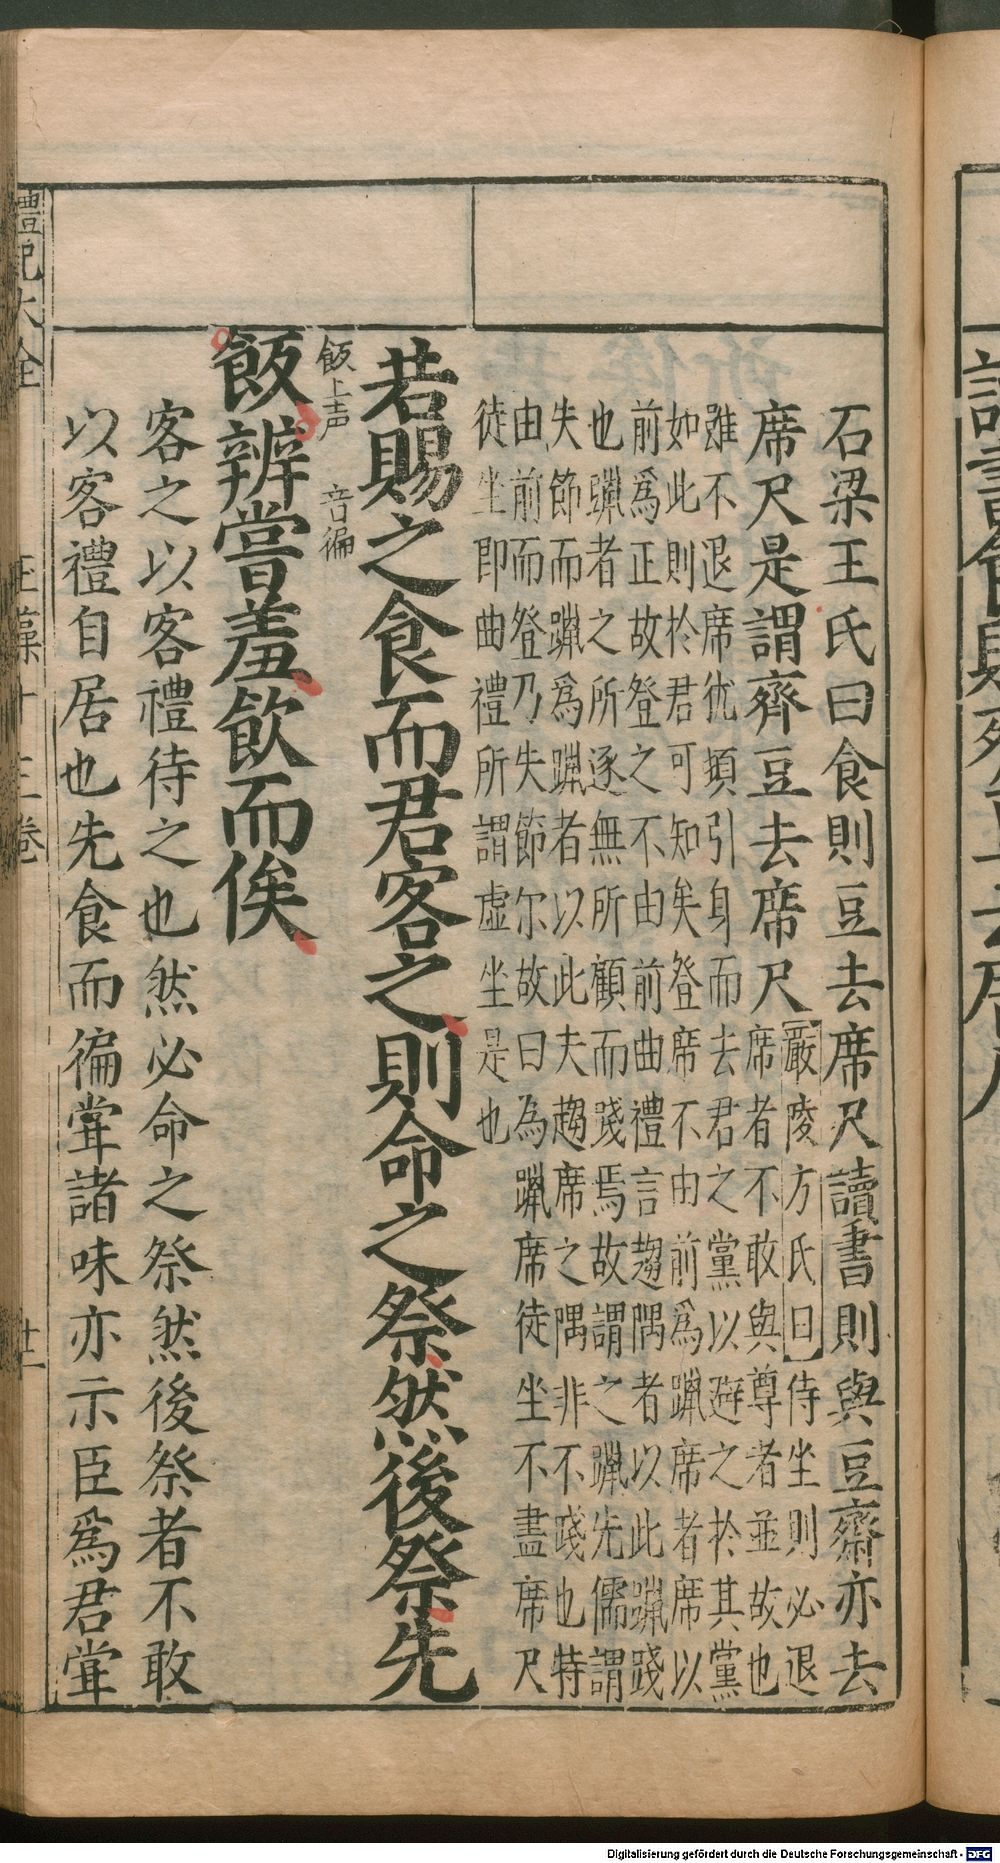 石梁王氏曰食則豆去席尺讀書則與豆齊亦去
席尺是謂齊豆去席尺
嚴陵方氏曰侍坐則必退
席者不敢與尊者並故也
雖不退席優頻引身而去君之黨以避之於其黨
如此則於君可知矣登席不由前為躐席者席以
前為正故登之不由前曲禮言趨隅者以此躐踐
也躐者之所逐無所顧而踐焉故謂之躐先儒謂
失節而躐為躐者以此夫趨席之隅非不踐也特
由前而登乃失節尔故曰為躐席徒坐不盡席尺
徒坐即曲禮所謂虛坐是也
若賜之食而君客之則命之祭然後祭先
飯上声 音徧
飯辨嘗羞飲而俟
客之以客禮待之也然必命之祭然後祭者不敢
以客禮自居也先食而徧甞諸味亦示臣爲君甞
禮記大全 玉藻十三卷 廿一
Digitalisierung gefördert durch die Deutsche Forschungsgemeinschaft - DFG